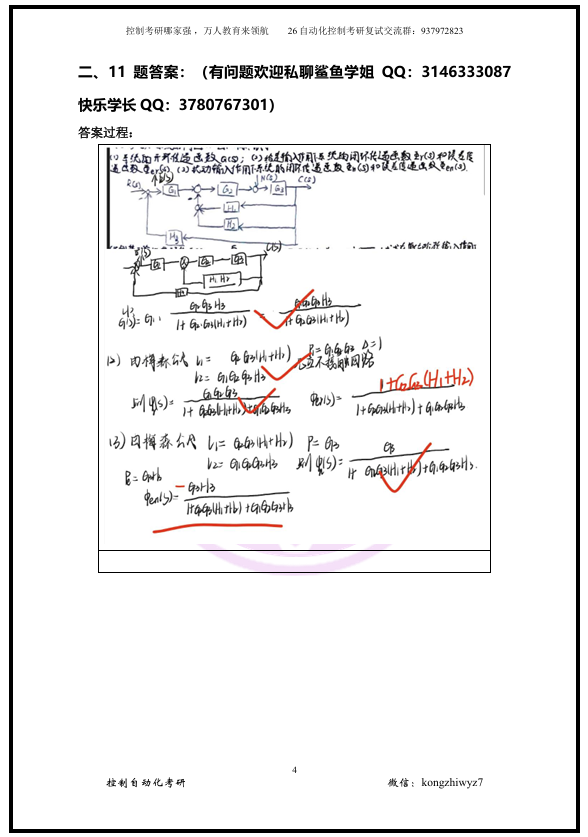 控制考研哪家强，万人教育来领航 26自动化控制考研复试交流群：937972823
二、11 题答案：（有问题欢迎私聊鲨鱼学姐 QQ：3146333087
快乐学长QQ：3780767301）
答案过程：
(1)系统的开环传递函数G(s)；(2)给定输入作用下系统的闭环传递函数Φr(s)和误差传
递函数Φer(s)，(3)扰动输入作用下系统的闭环传递函数Φn(s)和误差传递函数Φen(s)．
R(s) E(s) G1 G2 N(s) G3 C(s)
H1
H2
H3
E(s) C(s)
H1+H2
G(s)= G1· G2G3H3 / 1+G2G3(H1+H2) = G1G2G3H3 / 1+G2G3(H1+H2)
(2) 由梅森公式 L1= G2G3(H1+H2) P=G1G2G3 Δ=1
L2= G1G2G3H3
则φ(s)= G1G2G3 / 1+G2G3(H1+H2)+G1G2G3H3 φer(s)= 1+G2G3(H1+H2) / 1+G2G3(H1+H2)+G1G2G3H3
(3) 由梅森公式 L1= G2G3(H1+H2) P=G3
L2= G1G2G3H3 则φ(s)= G3 / 1+G2G3(H1+H2)+G1G2G3H3.
φen(s)= -G3H3 / 1+G2G3(H1+H2)+G1G2G3H3
4
控制自动化考研 微信：kongzhiwyz7